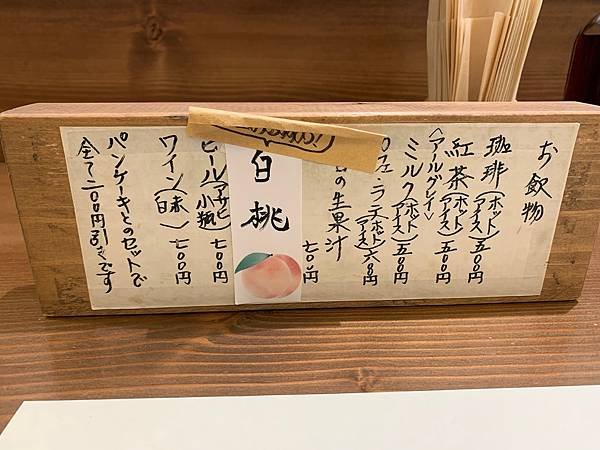 お飲物
珈琲(ホット/アイス)五〇〇円
紅茶(ホット/アイス)五〇〇円
〈アールグレイ〉
ミルク(ホット/アイス)五〇〇円
カフェ・ラテ(ホット/アイス)六〇〇円
の生果汁 七〇〇円
白桃
ビール(アサヒ小瓶)七〇〇円
ワイン(赤白)七〇〇円
パンケーキとのセットで
全て二〇〇円引きです